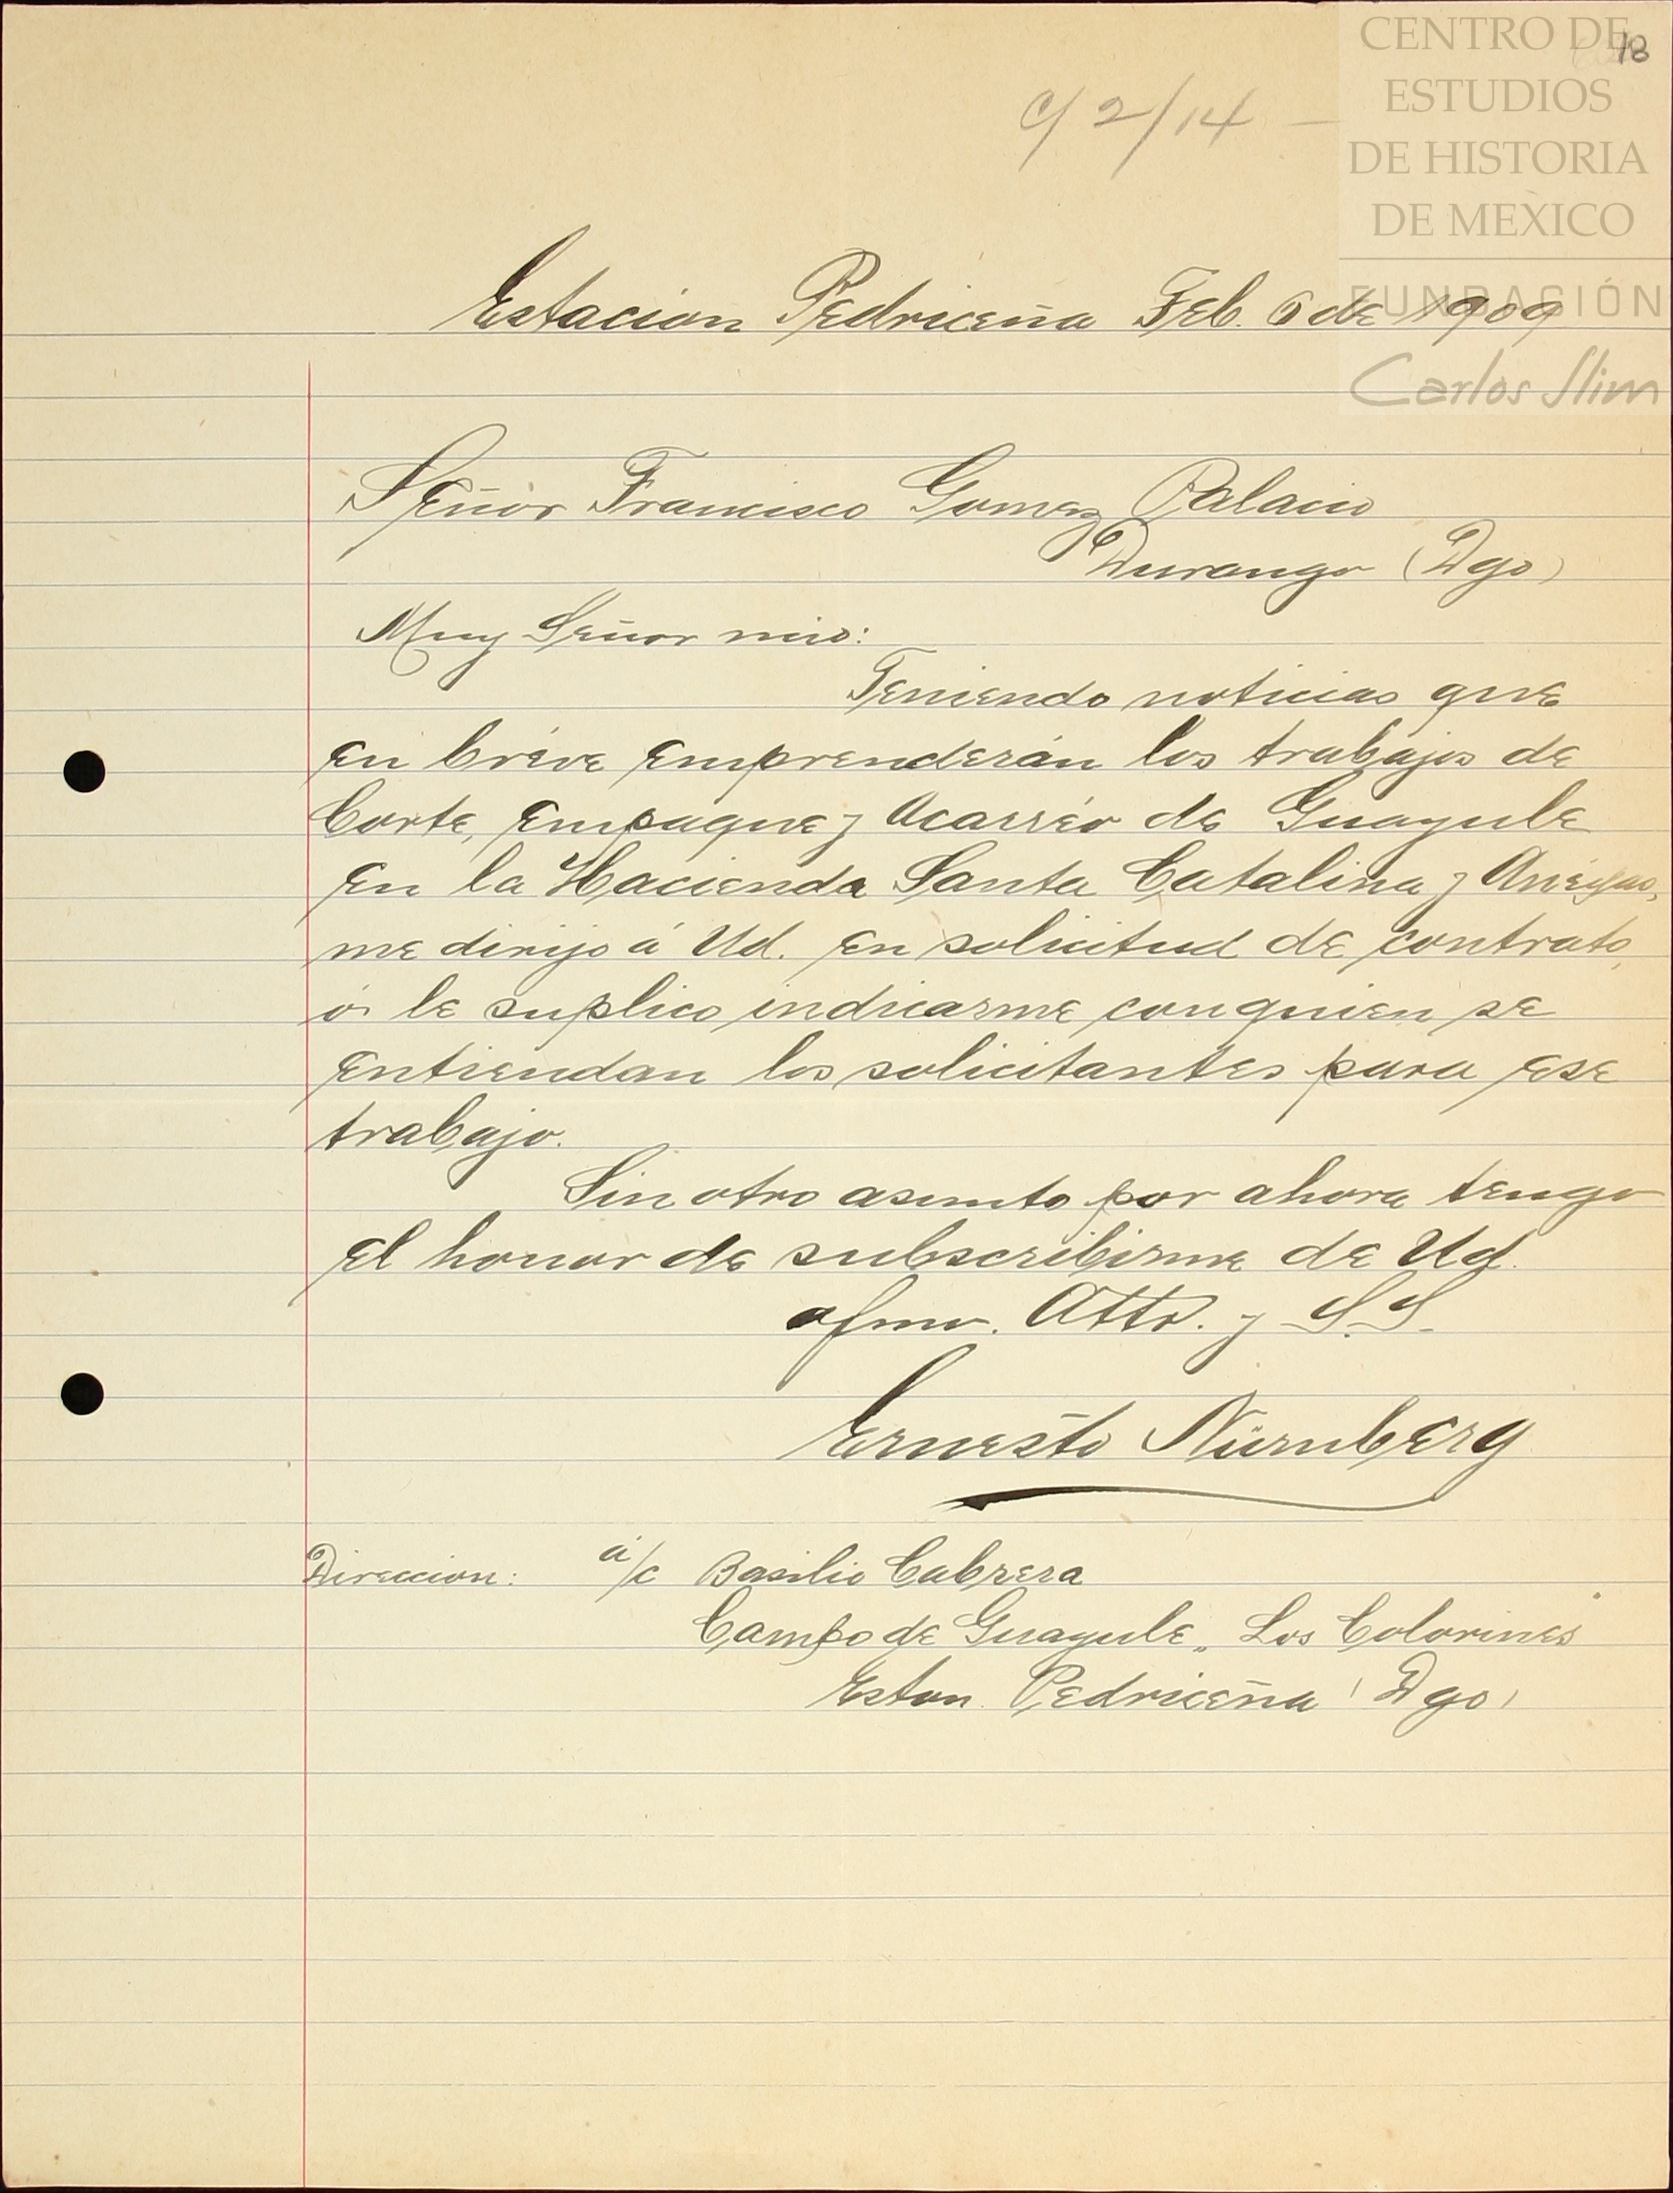 CENTRO DE
ESTUDIOS
DE HISTORIA
DE MEXICO
FUNDACIÓN
Carlos Slim
18
c/ 2/14 -
Estacion Pedriceña Feb. 6 de 1909
Señor Francisco Gomez Palacio
Durango (Dgo)
Muy Señor mio:
Teniendo noticias que
en bréve emprenderán los trabajos de
Corte, Empaque y Acarréo de Guayule
en la Hacienda Santa Catalina y Anéxas,
me dirijo á Ud. en solicitud de contrato,
ó le suplico indicarme con quien se
entiendan los solicitantes para ese
trabajo.
Sin otro asunto por ahora tengo
el honor de subscribirme de Ud.
afmo. Atto. y S.S.
Ernesto Nürnberg
Direccion: á/c Basilio Cabrera
Campo de Guayule „Los Colorines"
Eston. Pedriceña (Dgo)